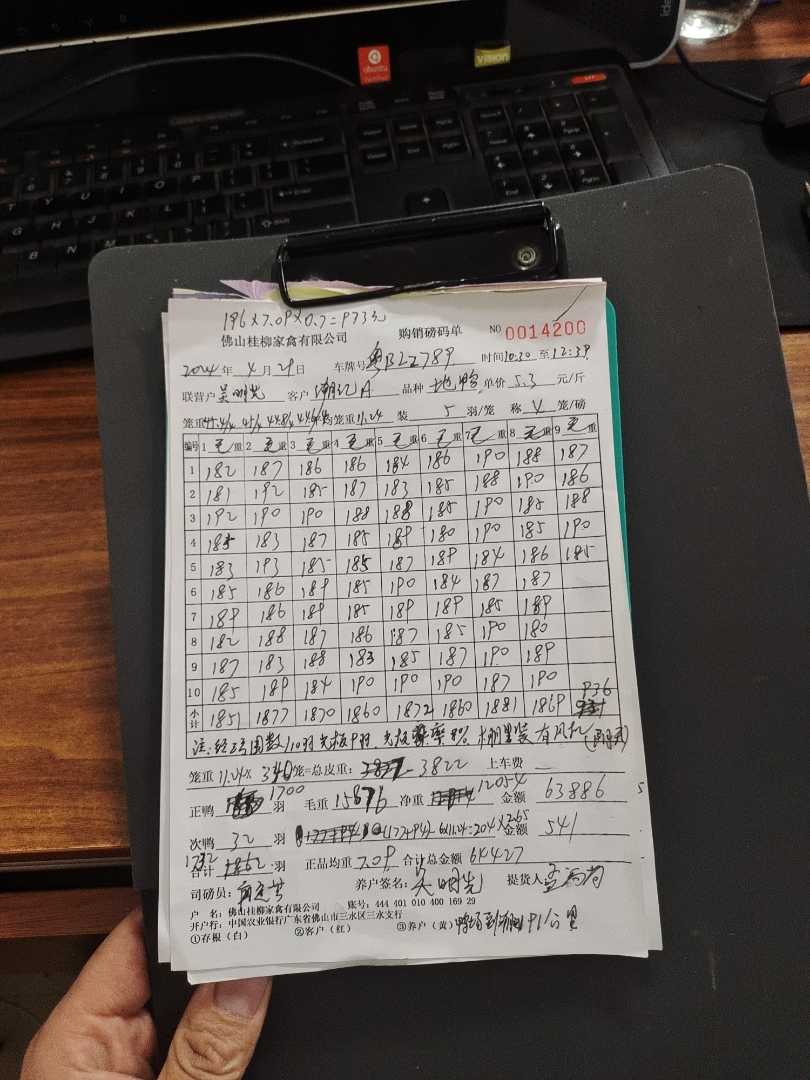 ubuntu
VISION
196×7.09×0.7=973元
佛山桂柳家禽有限公司 购销磅码单 NO 0014200
2024年4月29日 车牌号粤BLZ789 时间10:30至12:39
联营户吴明先 客户潮记A 品种 单价5.3元/斤
笼重 均笼重11.24 装5羽/笼 称4笼/磅
编号 1毛重 2毛重 3毛重 4毛重 5毛重 6毛重 7毛重 8毛重 9毛重
1 182 187 186 186 184 186 190 188 187
2 181 192 185 187 183 185 188 190 186
3 192 190 190 188 188 185 190 185 188
4 185 183 187 185 189 180 190 185 190
5 183 193 185 185 187 189 184 186 185
6 185 186 189 185 190 184 187 187
7 189 186 189 185 189 189 185 189
8 182 188 187 186 187 185 190 180
9 187 183 188 183 185 187 190 189
10 185 189 184 190 190 190 187 190
小计 1851 1877 1870 1860 1872 1860 1881 1869 936
笼重11.24×340笼=总皮重: 3822 上车费
正鸭 1700 羽 毛重15876 净重12054 金额63886
次鸭 32 羽 (177+94)-6×11.24=204×2.65 金额541
合计 1732 羽 正品均重7.09 合计总金额64427
司磅员: 养户签名: 吴明先 提货人
户 名: 佛山桂柳家禽有限公司 账号: 444 401 010 400 169 29
开户行: 中国农业银行广东省佛山市三水区三水支行
①存根（白） ②客户（红） ③养户（黄） 91公里